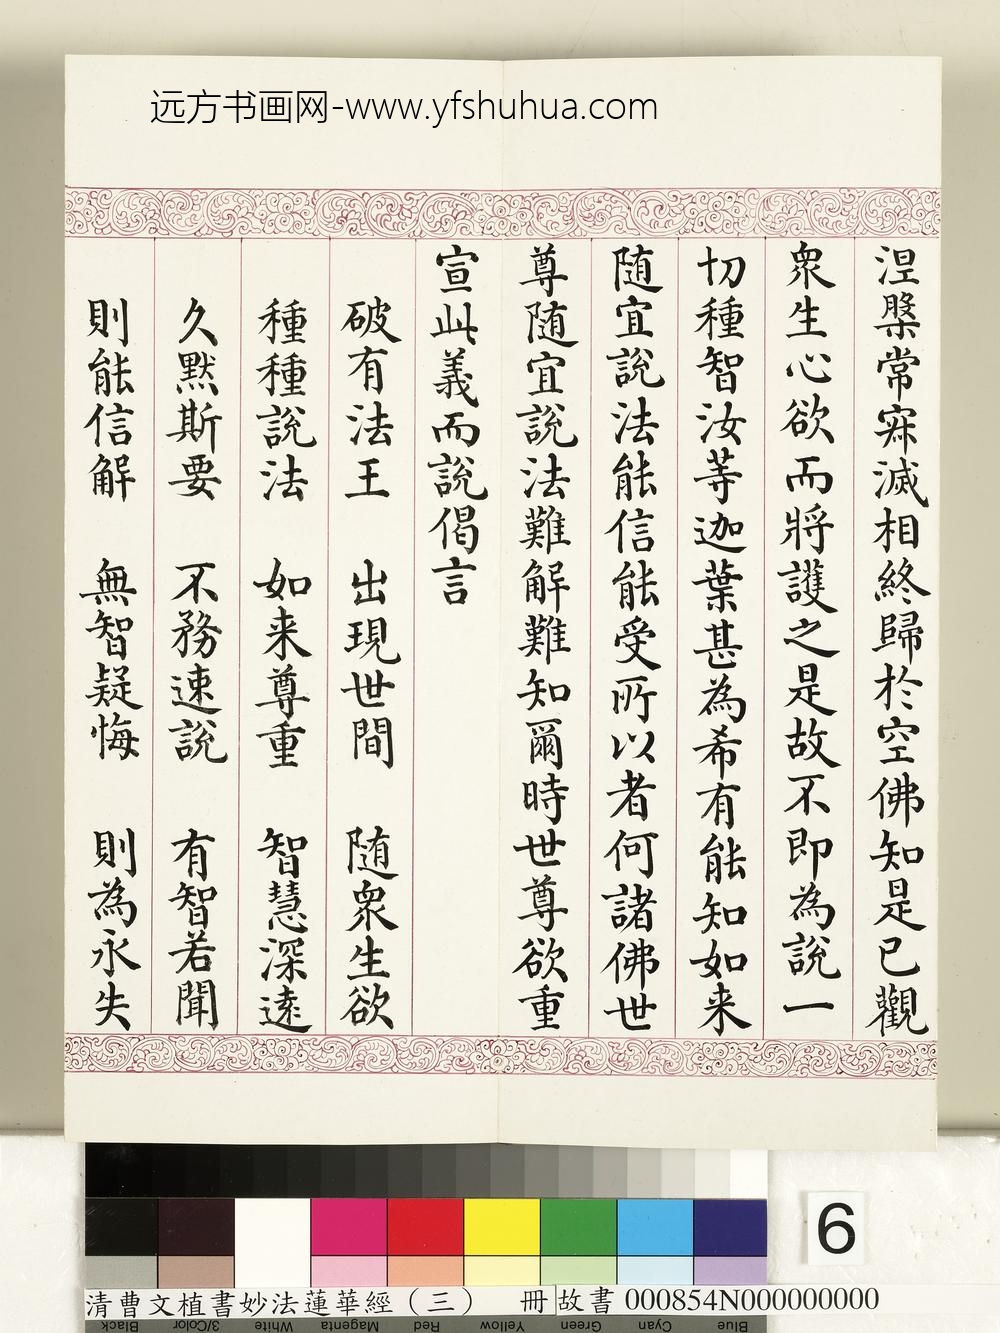 远方书画网-www.yfshuhua.com
涅槃常寂滅相終歸於空佛知是已觀
衆生心欲而將護之是故不即為說一
切種智汝等迦葉甚為希有能知如来
随宜說法能信能受所以者何諸佛世
尊随宜說法難解難知爾時世尊欲重
宣此義而說偈言
破有法王 出現世間 随衆生欲
種種說法 如来尊重 智慧深遠
久默斯要 不務速說 有智若聞
則能信解 無智疑悔 則為永失
6
清曹文植書妙法蓮華經（三） 冊 故書 000854N000000000
Black 3/Color White Magenta Red Yellow Green Cyan Blue